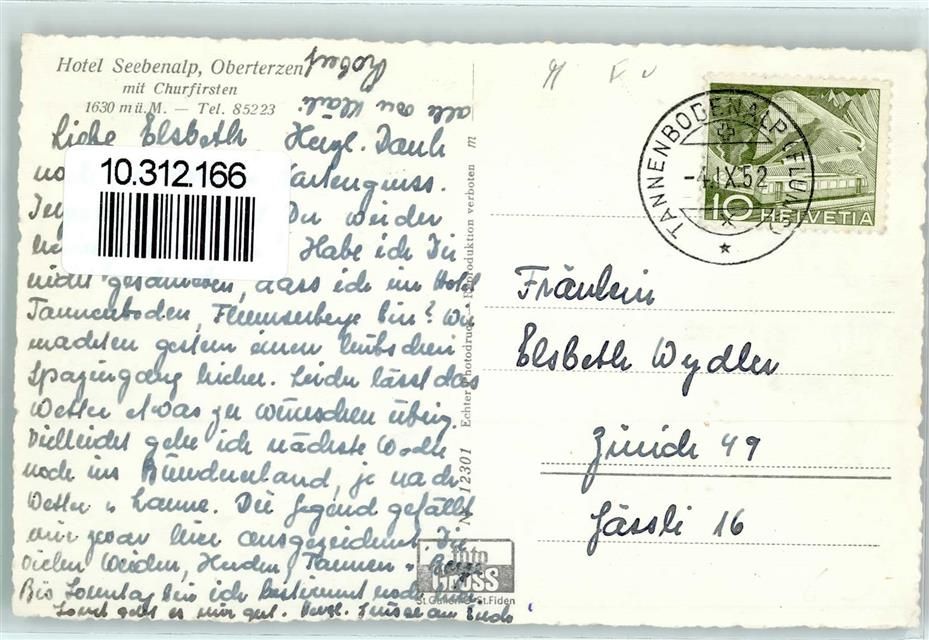 Hotel Seebenalp, Oberterzen
mit Churfirsten
1630 m ü. M. — Tel. 85223
Liebe Elsbeth Herzl. Dank
10.312.166
Kartengruss.
Du wieder
Habe ich Dir
nicht geschrieben, dass ich im Hotel
Tannenboden, Flumserberge bin? Wir
machten gestern einen hübschen
Spaziergang hieher. Leider lässt das
Wetter etwas zu wünschen übrig.
Vielleicht gehe ich nächste Woche
noch ins Bündnerland, je nach
Wetter u Laune. Die Gegend gefällt
mir zwar hier ausgezeichnet. Die
vielen Weiden, Herden, Tannen u
Bis Sonntag bin ich bestimmt noch hier.
Sonst geht es mir gut. Herzl. Grüsse an Euch
alle von
Robert
No 12301 Echter Photodruck • Reproduktion verboten m
foto
GROSS
St. Gallen O St. Fiden
TANNENBODENALP (FLUMS)
-4.IX.52
10 HELVETIA
Fräulein
Elsbeth Wydler
Zürich 49
Gässli 16